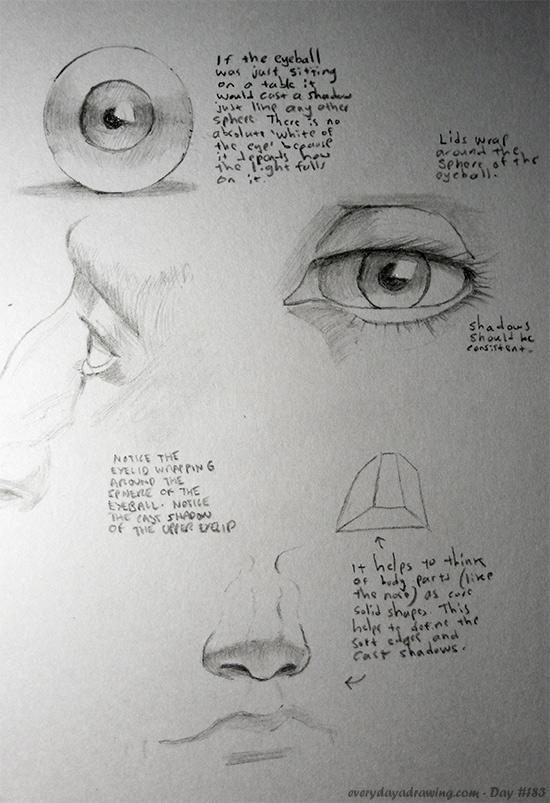 If the eyeball
was just sitting
on a table it
would cast a shadow
just like any other
sphere. There is no
absolute 'white of
the eye' because
it depends how
the light falls
on it.
Lids wrap
around the
sphere of the
eyeball.
shadows
should be
consistent.
NOTICE THE
EYELID WRAPPING
AROUND THE
SPHERE OF THE
EYEBALL. NOTICE
THE CAST SHADOW
OF THE UPPER EYELID
It helps to think
of body parts (like
the nose) as core
solid shapes. This
helps to define the
soft edges and
cast shadows.
everydayadrawing.com - Day #183